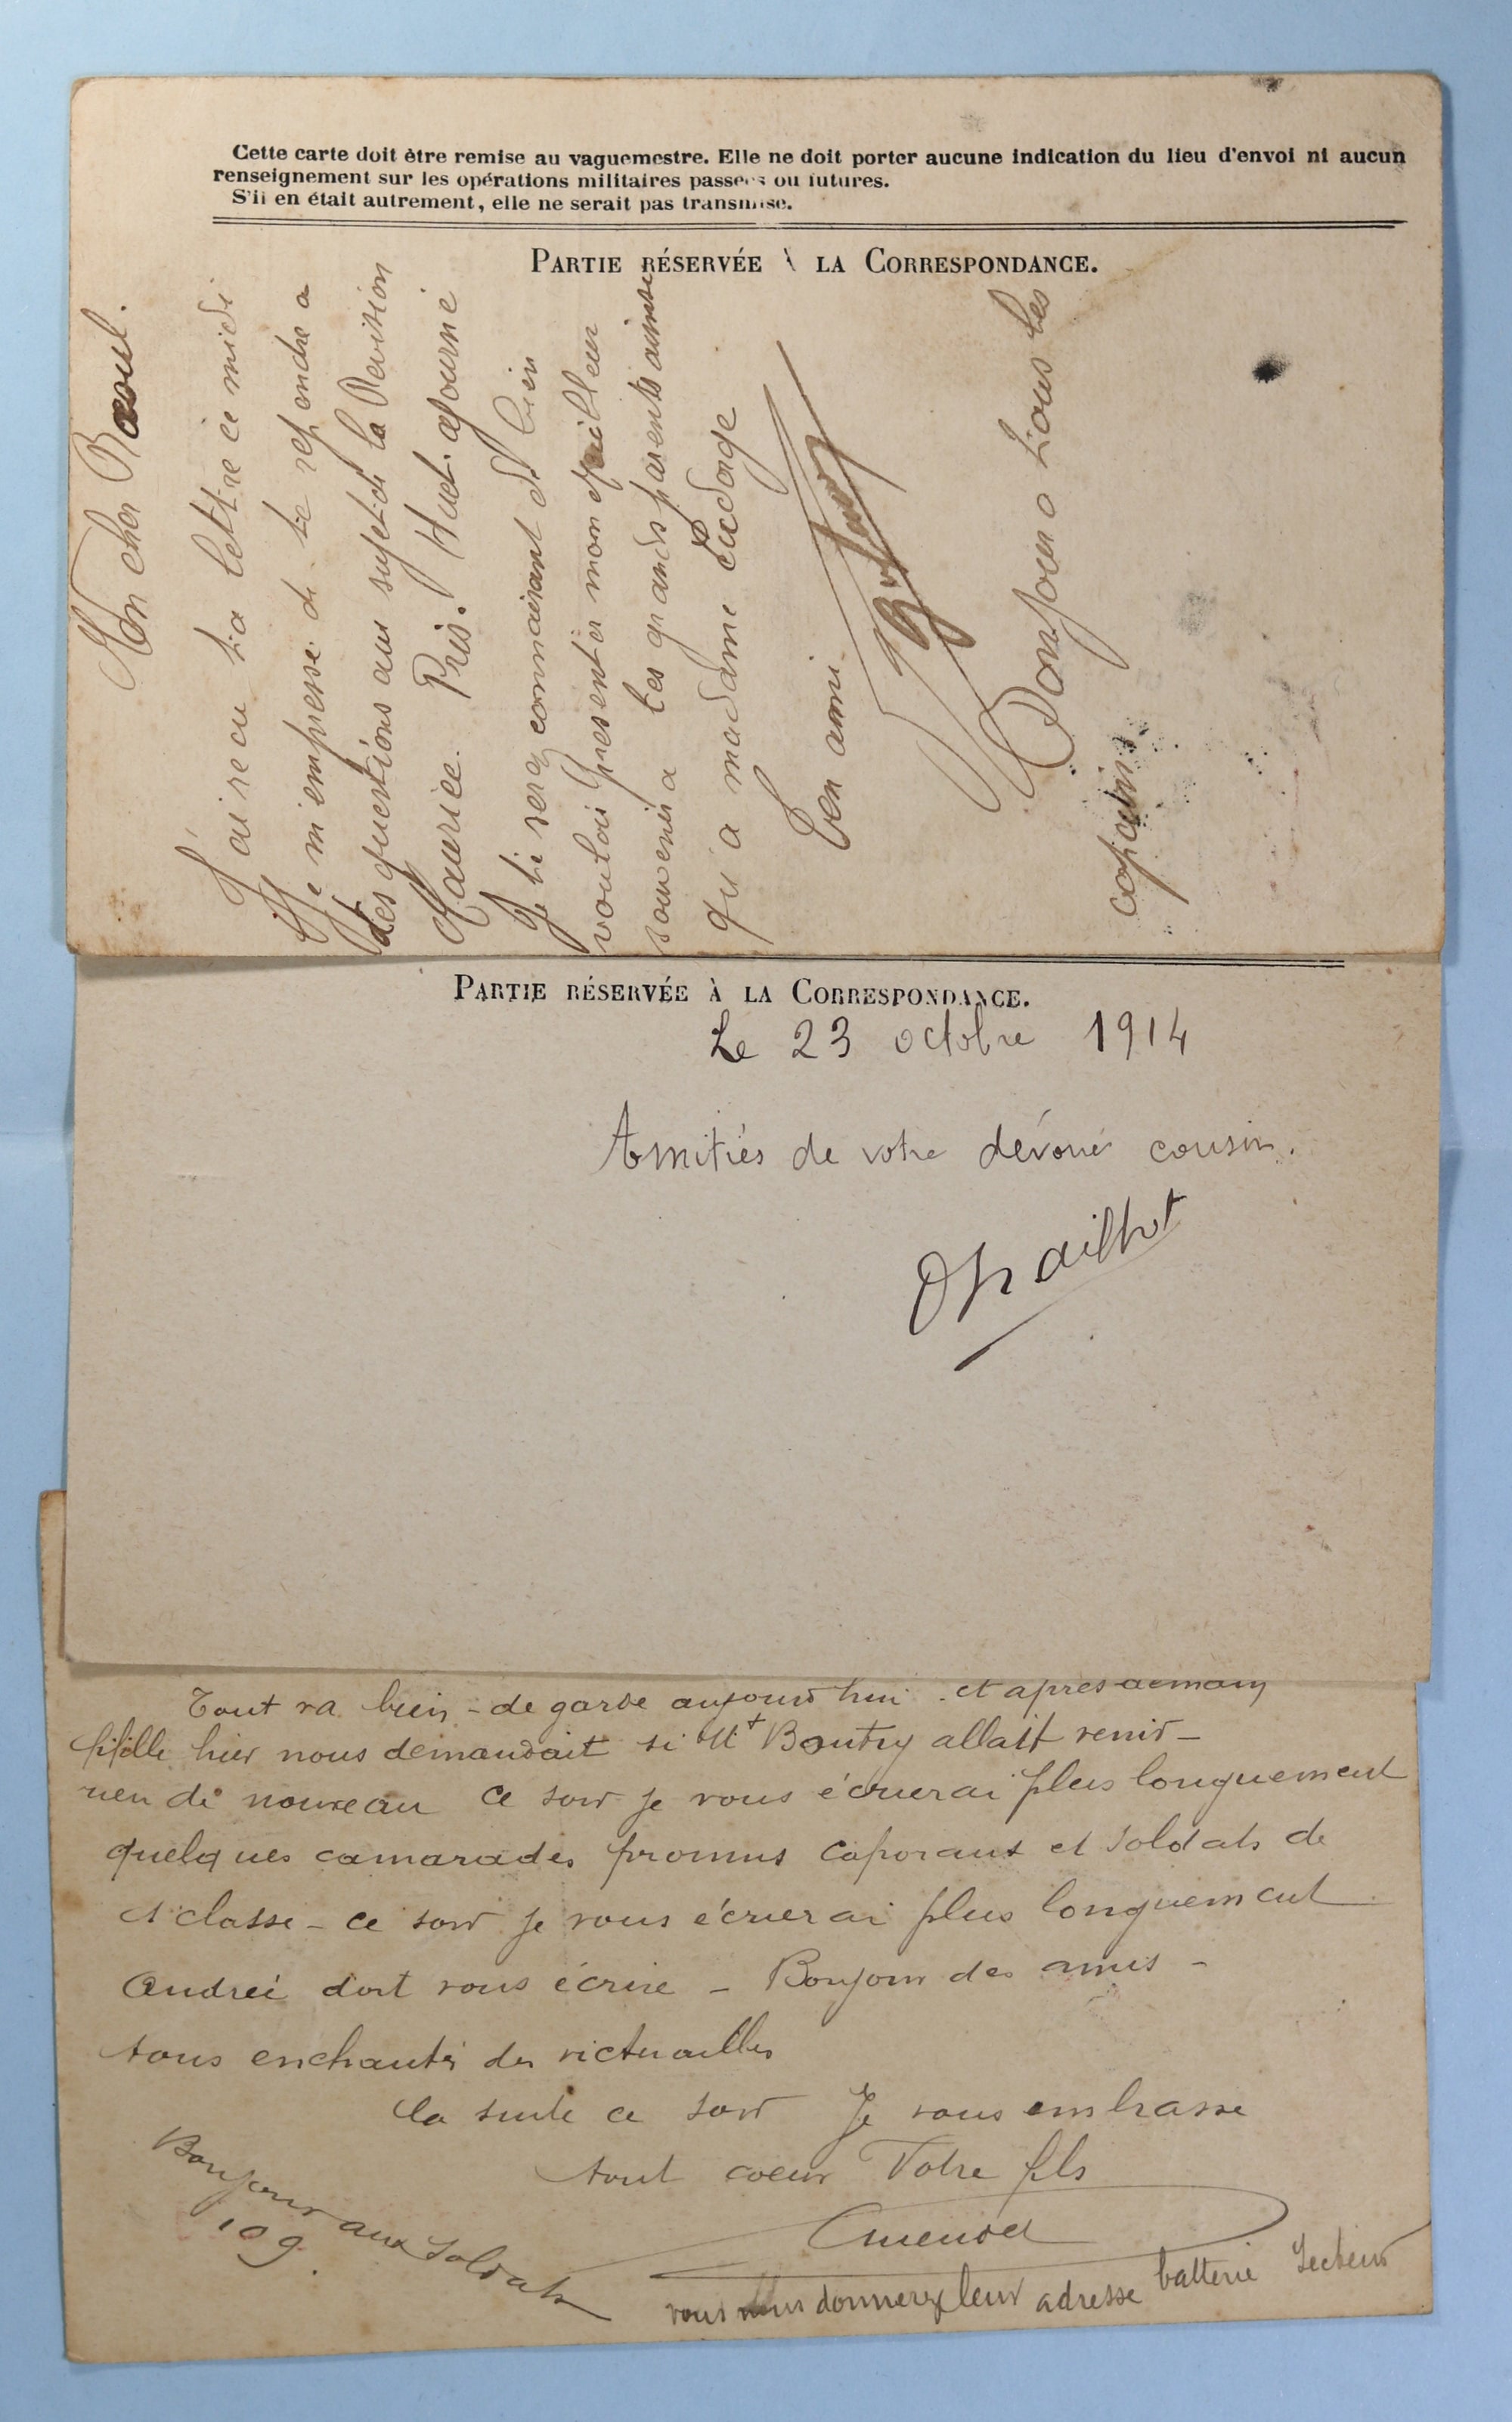 Cette carte doit être remise au vaguemestre. Elle ne doit porter aucune indication du lieu d'envoi ni aucun
renseignement sur les opérations militaires passées ou futures.
S'il en était autrement, elle ne serait pas transmise.
PARTIE RÉSERVÉE À LA CORRESPONDANCE.
Mon cher Raoul.
J'ai recu ta lettre ce midi
et je m'empresse de te repondre a
des questions au sujet de la Revision
Maurice. Pris. Huet. ajourné
Je te serai reconnaissant de bien
vouloir presenter mon meilleur
souvenir a tes grands parents ainsi
qu'a madame
Ton ami
Bonjour a tous les
copains
PARTIE RÉSERVÉE À LA CORRESPONDANCE.
Le 23 octobre 1914
Amitiés de votre dévoué cousin.
Tout va bien - de garde aujourd'hui et apres demain
hier nous demandait si Mt Boutry allait venir -
rien de nouveau ce soir je vous écrierai plus longuement
quelques camarades promus caporaux et soldats de
1 classe - ce soir je vous écrierai plus longuement
André doit vous écrire - Bonjour des amis -
tous enchantés des victuailles
la suite ce soir Je vous embrasse
tout coeur Votre fils
Bonjour aux soldats
109.
vous nous donnerez leur adresse batterie Secteur